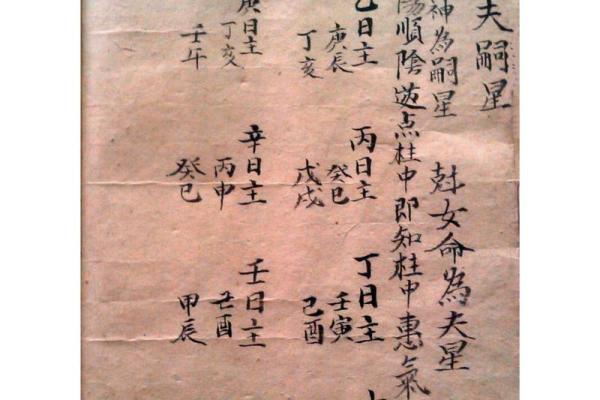 夫嗣星
神為嗣星 尅女命為夫星
陽順陰逆点柱中即知柱中惠氣
乙日主 丙日主 丁日主
庚辰 癸巳 壬寅
丁亥 戊戌 己酉
庚日主 辛日主 壬日主
丁亥 丙申 己酉
壬午 癸巳 甲辰